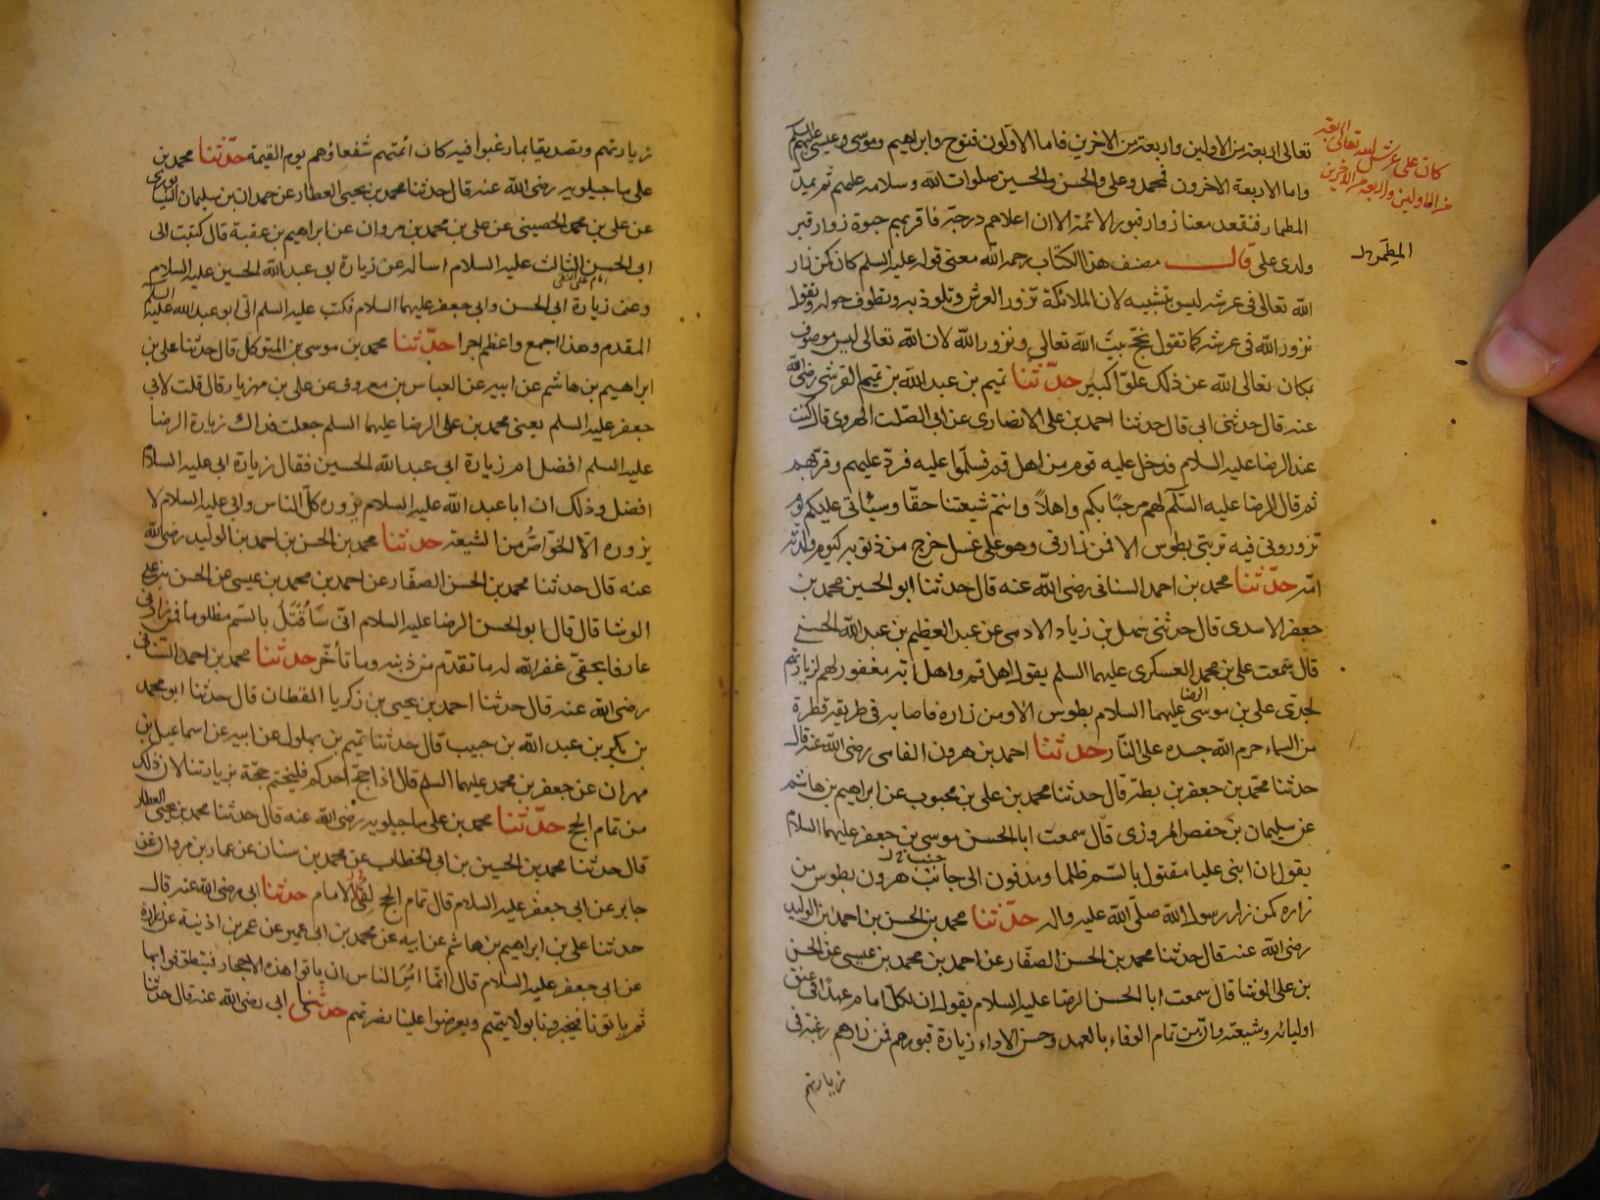 تعالى اربعة من الاولين واربعة من الاخرين فاما الاولون فنوح وابراهيم وموسى وعيسى عليهم السلم
واما الاربعة الاخرون فمحمد وعلى والحسن والحسين صلوات الله وسلامه عليهم ثم يمد
المطمار فنقعد معنا زوار قبور الائمة الا ان اعلاهم درجة فاقربهم حبوة زوار قبر
ولدى على قال مصنف هذا الكتاب رحمه الله معنى قوله عليه السلم كان كمن زار
الله تعالى فى عرشه ليس بتشبيه لان الملائكة تزور العرش وتلوذ به وتطوف حوله وتقول
نزور الله فى عرشه كما تقول نحج بيت الله تعالى ونزور الله لان الله تعالى ليس موصوف
بمكان تعالى الله عن ذلك علوا كبيرا حدّثنا تميم بن عبد الله بن تميم القرشى رضى الله
عنه قال حدثنى ابى قال حدثنا احمد بن على الانصارى عن ابى الصلت الهروى قال كنت
عند الرضا عليه السلام فدخل عليه قوم من اهل قم فسلموا عليه فرد عليهم وقربهم
ثم قال الرضا عليه السلم لهم مرحبا بكم واهلاً وانتم شيعتنا حقا وسياتى عليكم يوم
تزورونى فيه تربتى بطوس الا فمن زارنى وهو على غسل خرج من ذنوبه كيوم ولدته
امه حدّثنا محمد بن احمد السنانى رضى الله عنه قال حدثنا ابو الحسين محمد بن
جعفر الاسدى قال حدثنى سهل بن زياد الادمى عن عبد العظيم بن عبد الله الحسنى
قال سمعت على بن محمد العسكرى عليهما السلم يقول اهل قم واهل ابه مغفور لهم لزيارتهم
لجدى على بن موسى الرضا عليهما السلام بطوس الا ومن زاره فاصابه فى طريقه قطرة
من السماء حرم الله جسده على النار حدثنا احمد بن هرون الفامى رضى الله عنه قال
حدثنا محمد بن جعفر بن بطة قال حدثنا محمد بن على بن محبوب عن ابراهيم بن هاشم
عن سليمان بن حفص المروزى قال سمعت ابا الحسن موسى بن جعفر عليهما السلام
يقول ان ابنى عليا مقتول بالسم ظلما ومدفون الى جانب هرون بطوس من
زاره كمن زار رسول الله صلى الله عليه واله حدّثنا محمد بن الحسن بن احمد بن الوليد
رضى الله عنه قال حدثنا محمد بن الحسن الصفار عن احمد بن محمد بن عيسى عن الحسن
بن على الوشا قال سمعت ابا الحسن الرضا عليه السلام يقول ان لكل امام عهدا فى عنق
اوليائه وشيعته وان من تمام الوفاء بالعهد وحسن الاداء زيارة قبورهم فمن زارهم رغبة فى
زيارتهم
كان على عرش الله تعالى اربعة
من الاولين واربعة من الاخرين
المطمر
زيارتهم وتصديقا بما رغبوا فيه كان ائمتهم شفعاؤهم يوم القيمة حدّثنا محمد بن
على ماجيلويه رضى الله عنه قال حدثنا محمد بن يحيى العطار عن حمدان بن سليمان النيسابورى
عن على بن محمد الحصينى عن على بن محمد بن مروان عن ابراهيم بن عقبة قال كتبت الى
ابى الحسن الثالث عليه السلام اساله عن زيارة ابى عبد الله الحسين عليه السلام
امام على النقى
وعن زيارة ابى الحسن وابى جعفر عليهما السلام فكتب عليه السلم الى ابو عبد الله عليه السلم
المقدم وهذا اجمع واعظم اجرا حدّثنا محمد بن موسى بن المتوكل قال حدثنا على بن
ابراهيم بن هاشم عن ابيه عن العباس بن معروف عن على بن مهزيار قال قلت لابى
جعفر عليه السلم يعنى محمد بن على الرضا عليهما السلم جعلت فداك زيارة الرضا
عليه السلم افضل ام زيارة ابى عبد الله الحسين فقال زيارة ابى عليه السلام
افضل وذلك ان ابا عبد الله عليه السلام يزوره كل الناس وابى عليه السلام لا
يزوره الا الخواص من الشيعة حدثنا محمد بن الحسن بن احمد بن الوليد رضى الله
عنه قال حدثنا محمد بن الحسن الصفار عن احمد بن محمد بن عيسى عن الحسن بن على
الوشا قال قال ابو الحسن الرضا عليه السلام انى ساُقتَلُ بالسم مظلوما فمن زارنى
عارفا بحقى غفر الله له ما تقدم من ذنبه وما تأخر حدثنا محمد بن احمد السنانى
رضى الله عنه قال حدثنا احمد بن يحيى بن زكريا القطان قال حدثنا ابو محمد
بن بكر بن عبد الله بن حبيب قال حدثنا تميم بن بهلول عن ابيه عن اسماعيل بن
مهران عن جعفر بن محمد عليهما السلم قال اذا حج احدكم فليختم حجه بزيارتنا لان ذلك
من تمام الحج حدّثنا محمد بن على ماجيلويه رضى الله عنه قال حدثنا محمد بن يحيى العطار
قال حدثنا محمد بن الحسين بن ابى الخطاب عن محمد بن سنان عن عمار بن مروان عن
جابر عن ابى جعفر عليه السلام قال تمام الحج لقاء الامام حدثنا ابى رضى الله عنه قال
حدثنا على بن ابراهيم بن هاشم عن ابيه عن محمد بن ابى عمير عن عمر بن اذينة عن زرارة
عن ابى جعفر عليه السلام قال انما امر الناس ان ياتوا هذه الاحجار فيتطوفوا بها
ثم ياتونا فيخبرونا بولايتهم ويعرضوا علينا نصرتهم حدثنى ابى رضى الله عنه قال حدثنا